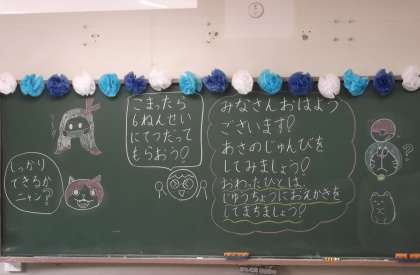 こまったら
6ねんせい
にてつだって
もらおう!
しっかり
できるか
ニャン?
みなさんおはよう
ございます!
あさのじゅんびを
してみましょう!
おわったひとは、
じゆうちょうにおえかきを
してまちましょう!
?